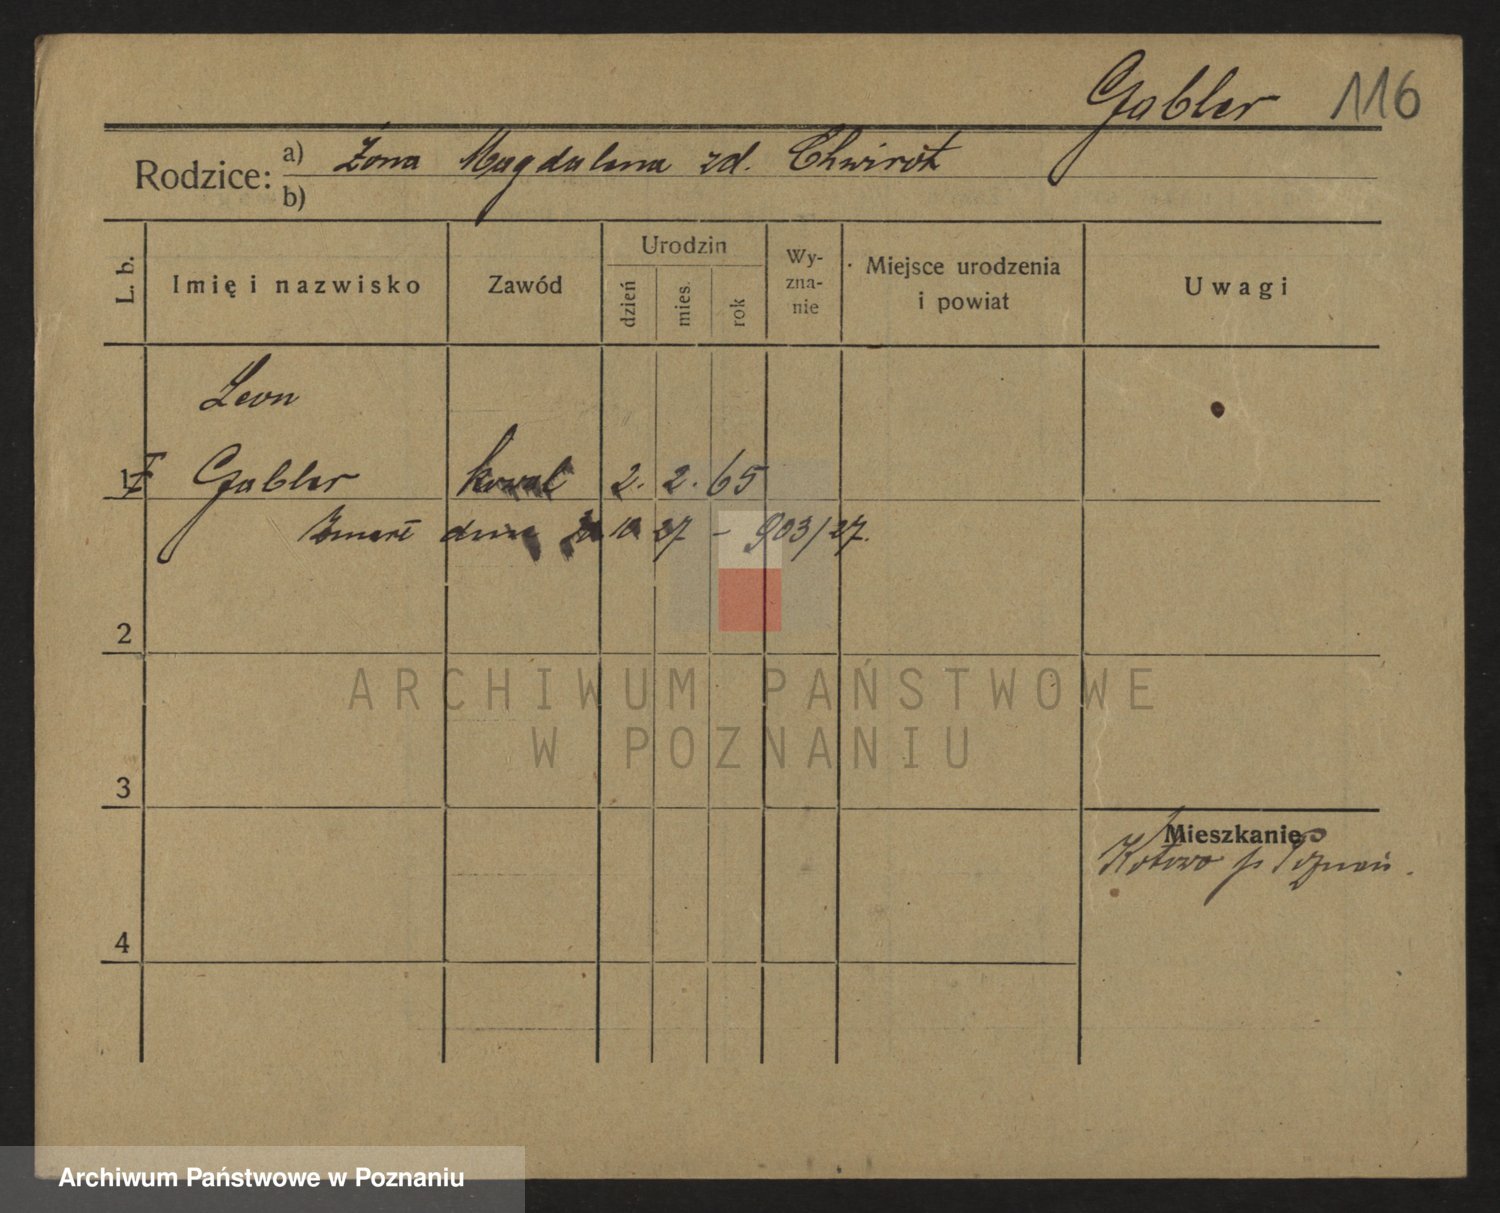 Gabler 116
Rodzice: a) Żona Magdalena zd. Chwirot
b)
L. b. Imię i nazwisko Zawód Urodzin dzień mies. rok Wy-zna-nie Miejsce urodzenia i powiat Uwagi
Leon
1 Gabler kowal 2. 2. 65
Zmarł dnia 10 27 – 903/27.
2
ARCHIWUM PAŃSTWOWE
W POZNANIU
3
Mieszkanie
Kotowo p. Poznań.
4
Archiwum Państwowe w Poznaniu